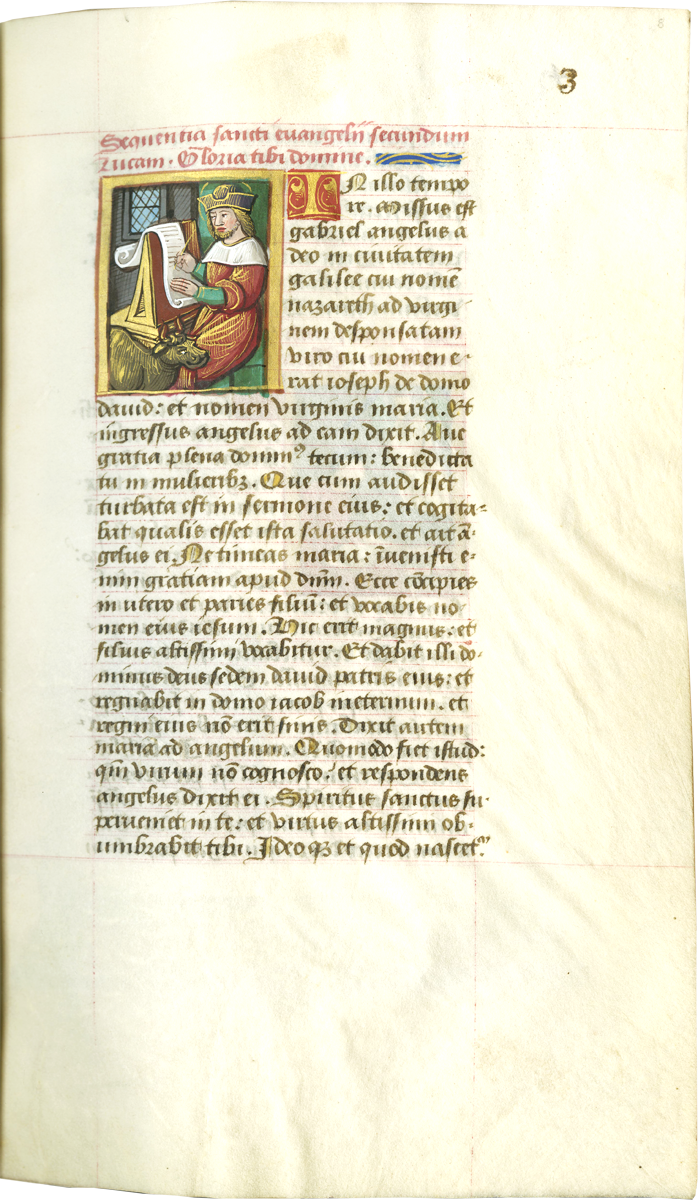 8
3
Sequentia sancti euangelij secundum
Lucam. Gloria tibi domine.
IN illo tempo
re. Missus est
gabriel angelus a
deo in ciuitatem
galilee cui nomē
nazareth ad virgi
nem desponsatam
viro cui nomen e-
rat ioseph de domo
dauid: et nomen virginis maria. Et
ingressus angelus ad eam dixit. Aue
gratia plena domin⁹ tecum: benedicta
tu in mulieribꝫ. Que cum audisset
turbata est in sermone eius: et cogita-
bat qualis esset ista salutatio. et ait ā-
gelus ei. Ne timeas maria: īuenisti e-
nim gratiam apud dn̄m. Ecce cōcipies
in utero et paries filiū: et vocabis no
men eius iesum. Hic erit magnus: et
filius altissimi vocabitur. Et dabit illi do-
minus deus sedem dauid patris eius: et
regnabit in domo iacob in eternum. et
regni eius nō erit finis. Dixit autem
maria ad angelum. Quomodo fiet istud:
qm̄ virum nō cognosco: et respondens
angelus dixit ei. Spiritus sanctus su-
perueniet in te: et virtus altissimi ob-
umbrabit tibi. Ideoqꝫ et quod nascet᷑